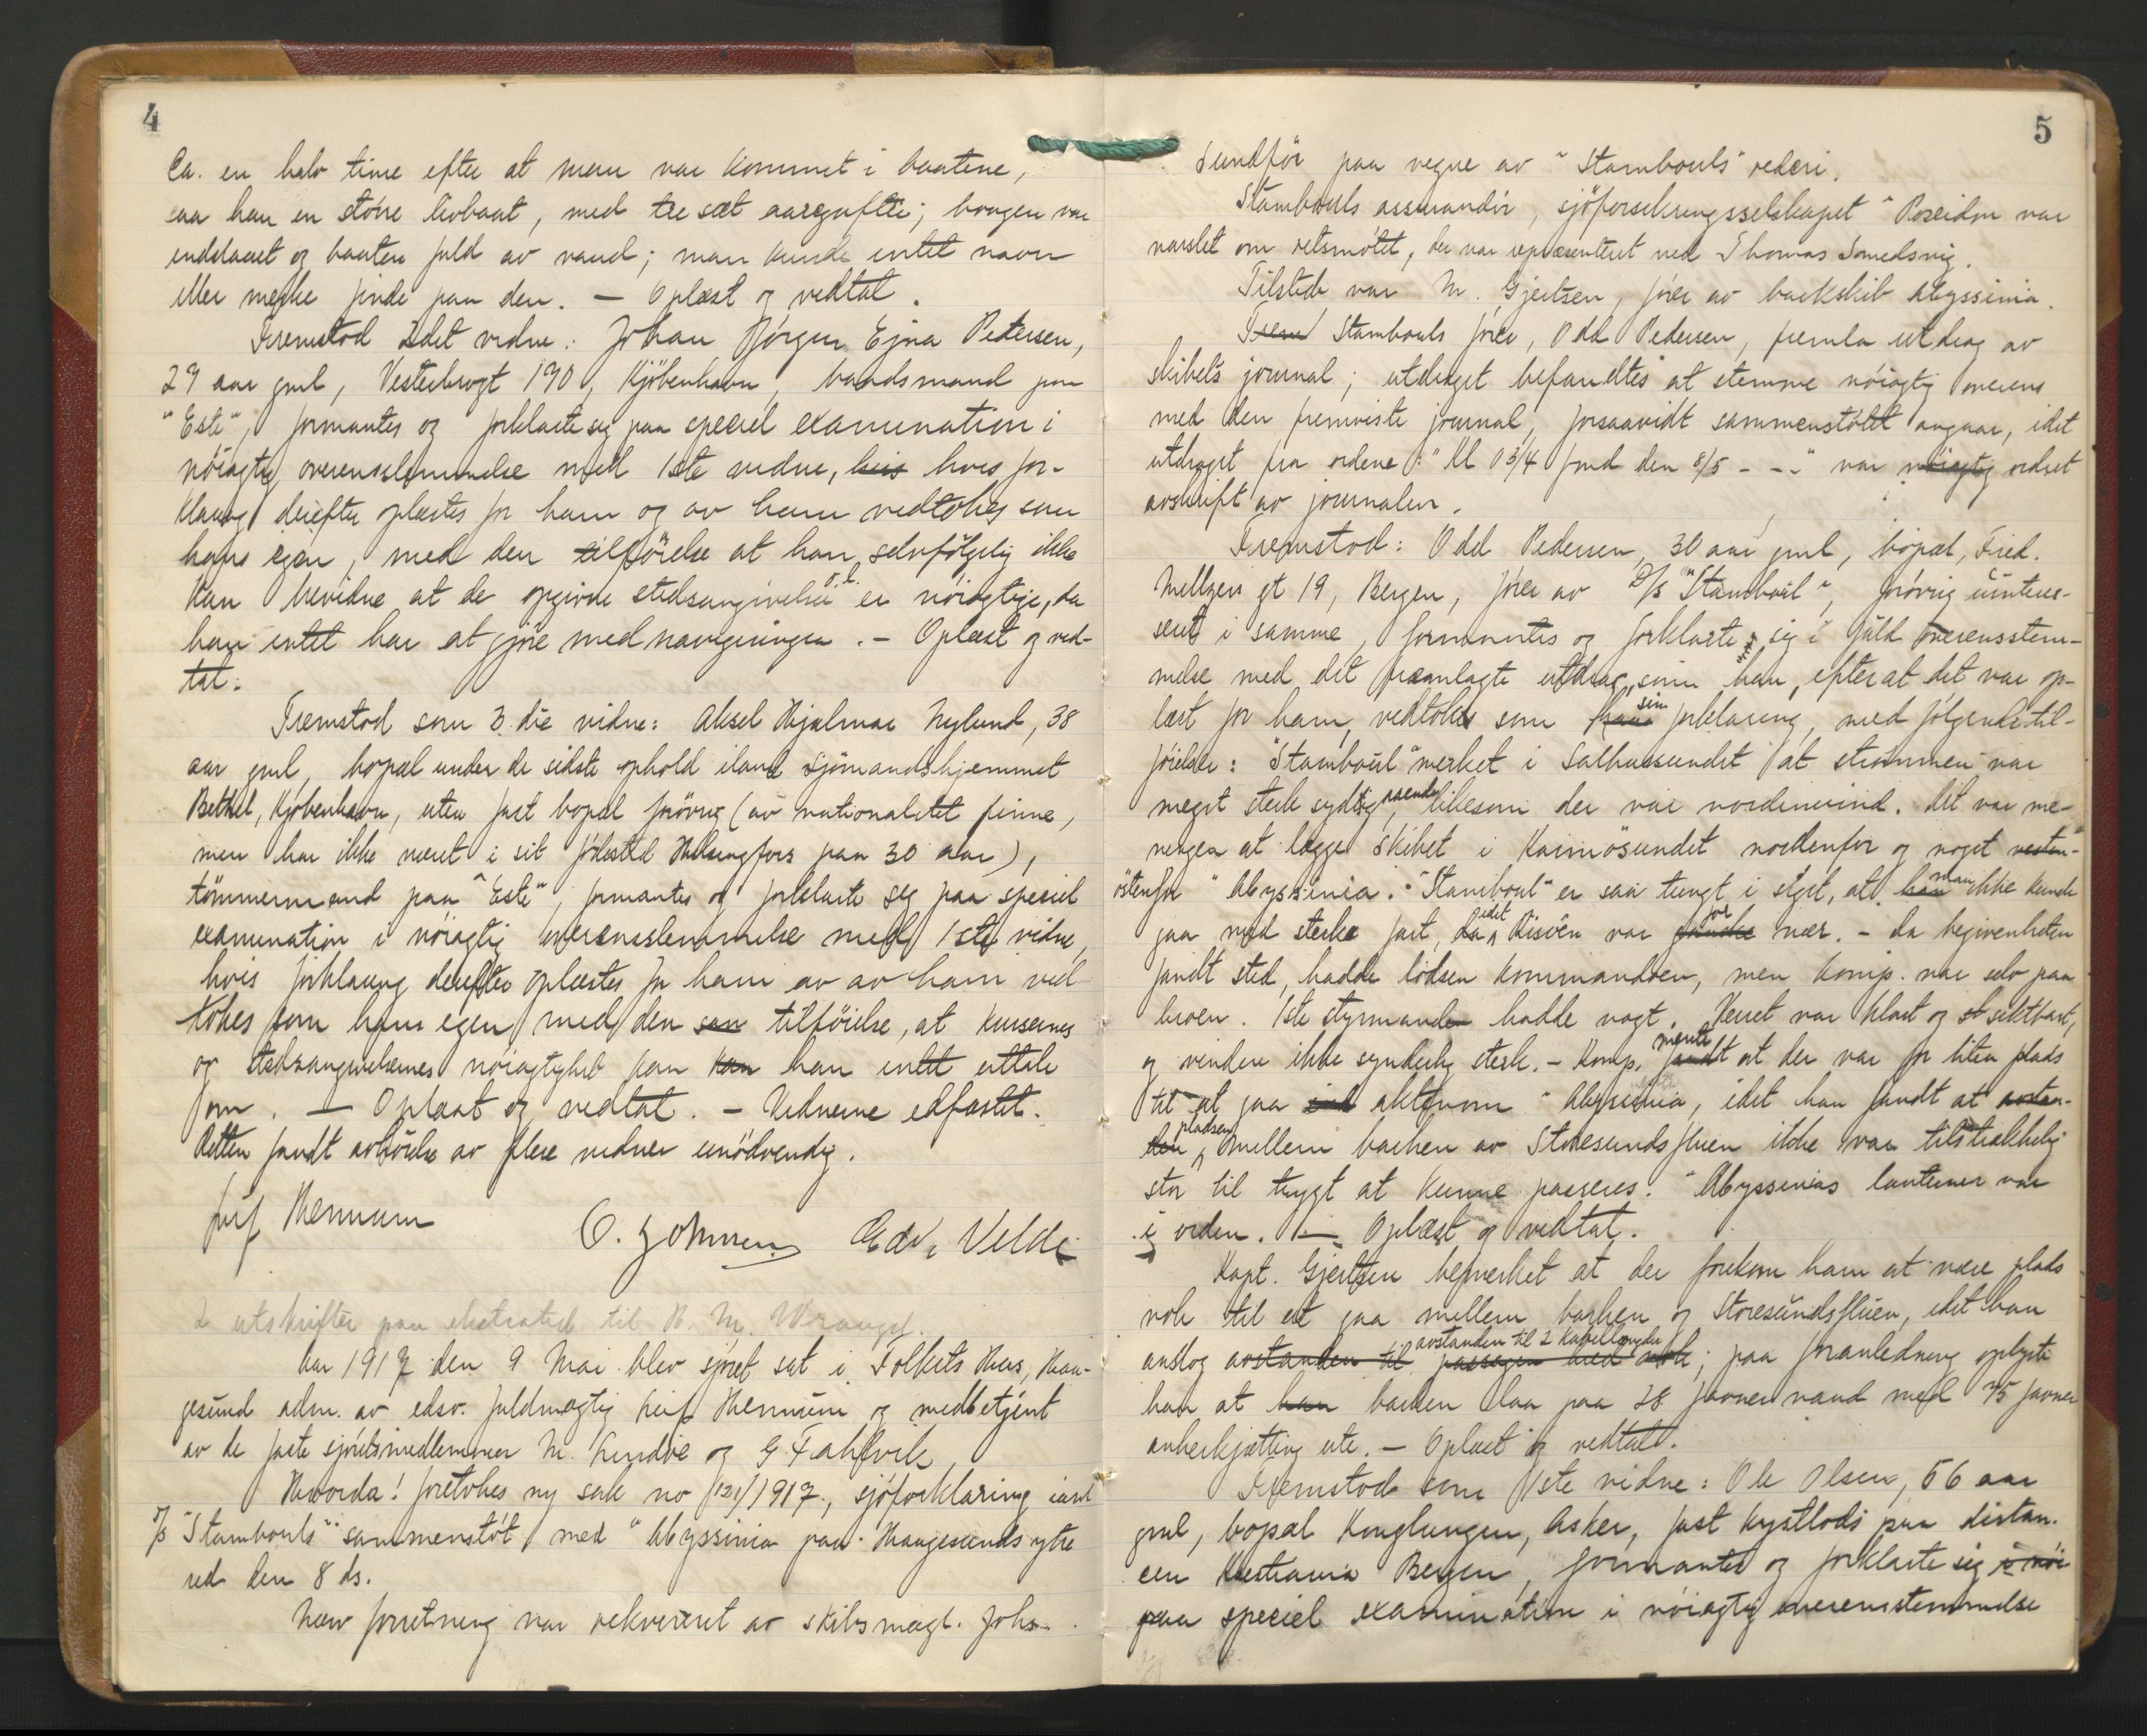 4
Ca. en halv time efter at man var kommet i baatene,
saa han en större livbaat, med tre sæt aaregafter; bougen var
indslaaet og baaten fuld av vand; man kunde intet navn
eller merke finde paa den. — Oplæst og vedtat.
Fremstod 2det vidne: Johan Jörgen Ejna Petersen,
29 aar gml, Vesterbrogt 190, Kjöbenhavn, baadsmand paa
"Este", formantes og forklarte sig paa speciel examination i
nöiagtig overensstemmelse med 1ste vidne, hvis for-
klaring derefter oplæstes for ham og av ham vedtokes som
hans egen, med den tilföielse at han selvfölgelig ikke
kan bevidne at de opgivne stedsangivelser o.l. er nöiagtige, da
han intet har at gjöre med navigeringen. — Oplæst og ved-
tat.
Fremstod som 3die vidne: Aksel Hjalmar Nylund, 38
aar gml, bopæl under de sidste ophold iland Sjömandshjemmet
Bethel, Kjöbenhavn, uten fast bopæl forövrig (av nationalitet finne,
men har ikke været i sit födested Helsingfors paa 30 aar),
tömmermand paa "Este", formantes og forklarte sig paa speciel
examination i nöiagtig overensstemmelse med 1ste vidne,
hvis forklaring derefter oplæstes for ham av av ham ved-
tokes som hans egen med den san tilföielse, at kursernes
og stedsangivelsernes nöiagtighet kan han intet uttale
om. — Oplæst og vedtat. — Vidnerne edfæstet.
Retten fandt avhörelse av flere vidner unödvendig.
Leif Hennum O. Johnsen Edv. Velde
2 utskrifter paa ekstratid til H. M. Wrangel.
Aar 1917 den 9 Mai blev sjöret sat i Folkets Hus, Hau-
gesund adm. av edsv. fuldmægtig Leif Hennum og medbetjent
av de faste sjöretsmedlemmer M. Lindöe og G. Fahlvik
Hvorda! foretokes ny sak no 121/1917, sjöforklaring ianl
D/S "Stambouls" sammenstöt med "Abyssinia paa Haugesunds ytre
red den 8 ds.
Nærv forretning var rekvireret av skibsmægl. Johs.
5
Sundför paa vegne av "Stambouls" rederi.
Stambouls assurandör, sjöforsikringsselskapet "Poseidon var
varslet om retsmötet, der var repræsenteret ved Thomas Smedsvig.
Tilstede var M. Gjertsen, förer av barkskib Abyssinia.
Frem Stambouls förer, Odd Pedersen, fremla utdrag av
skibets journal; utdraget befandtes at stemme nöiagtig overens
med den fremviste journal, forsaavidt sammenstötet angaar, idet
utdraget fra ordene: "Kl 0 3/4 fmd den 8/5 - -" var nöiagtig ordret
avskrift av journalen.
Fremstod: Odd Pedersen, 30 aar gml, bopæl, Fred.
Meltzers gt 19, Bergen, förer av D/S "Stamboul", forövrig uinteres-
sert i samme, formantes og forklarte sig i fuld overensstem-
melse med det fremlagte utdrag, som han, efter at det var op-
læst for ham, vedtokes som hans sin forklaring, med fölgende til-
föielse: "Stamboul" merket i Salhussundet at strömmen var
meget sterk sydligaaende, likesom der var nordenvind. Det var me-
ningen at lægge skibet i Karmösundet nordenfor og noget vesten-
östenfor "Abyssinia". "Stamboul" er saa tungt i siget, at han man ikke kunde
gaa med sterke fart, da idet Risöen var ganske for nær. — Da begivenheten
fandt sted, hadde lodsen kommandoen, men komp. var selv paa
broen. 1ste styrmanden hadde vagt. Veiret var klart og st siktbart,
og vinden ikke synderlig sterk. — Komp. fandt mente at der var for liten plads
til at gaa aktenom "Abyssinia, idet han fandt at avstan-
den pladsen mellem barken av Storesundsfluen ikke var tilstrækkelig
stor til trygt at kunne passeres. "Abyssinias lanterner var
i orden. — Oplæst og vedtat.
Kapt. Gjertsen bemerket at der forekom ham at være plads
nok til at gaa mellem barken og Storesundsfluen, idet han
anslog avstanden til passagen bred nok avstanden til 2 kabellængder; paa foranledning oplyste
han at han barken laa paa 28 favner vand med 75 favner
ankerkjætting ute. — Oplæst og vedtat.
Fremstod som 1ste vidne: Ole Olsen, 56 aar
gml, bopæl Konglungen, Asker, fast kystlods paa distan-
cen Kristiania Bergen, formantes og forklarte sig i nöi
paa speciel examination i nöiagtig overensstemmelse